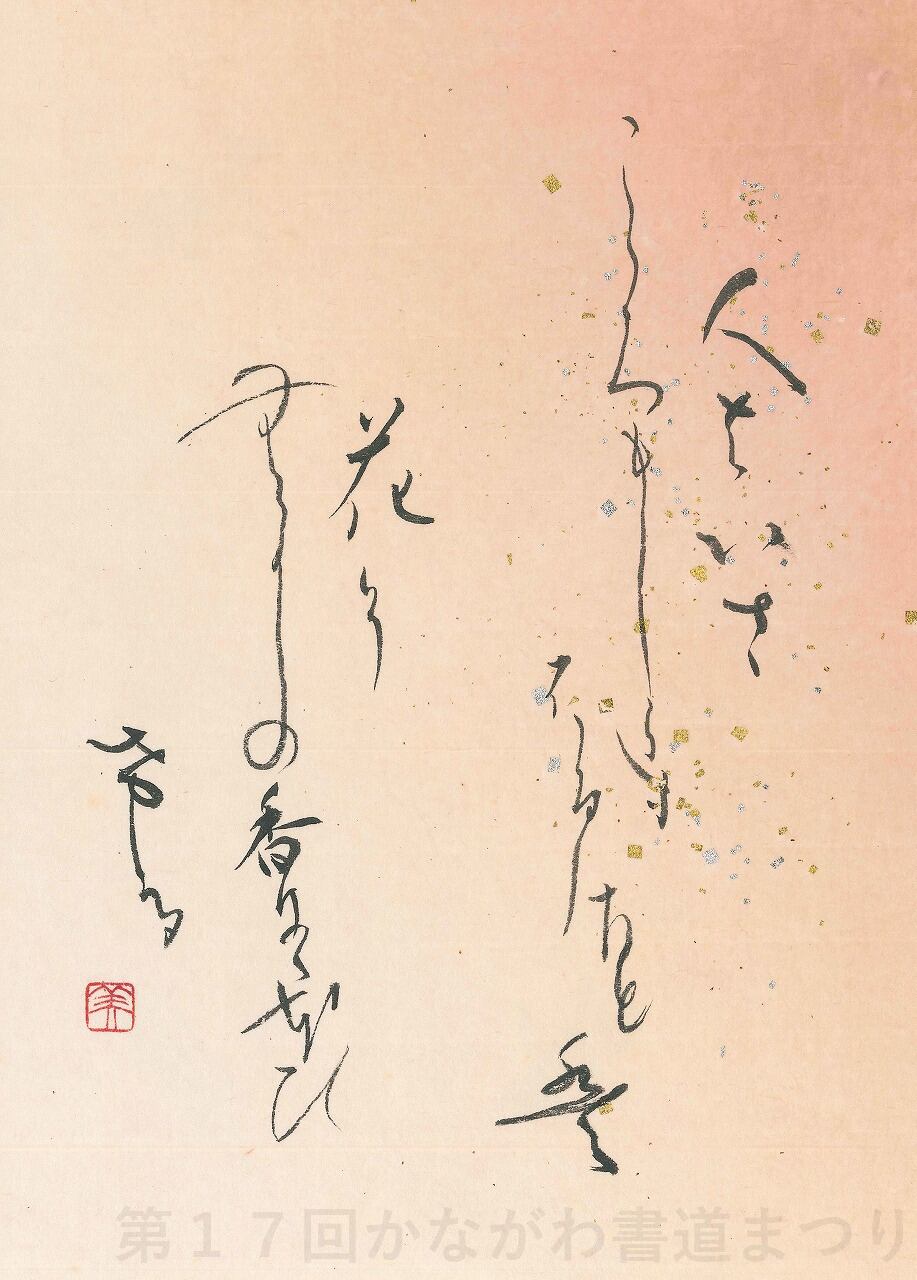 人はいさ
こころもしらす
ふるさとは
花そ
むかしの香ににほひ
ける
美
第１７回かながわ書道まつり